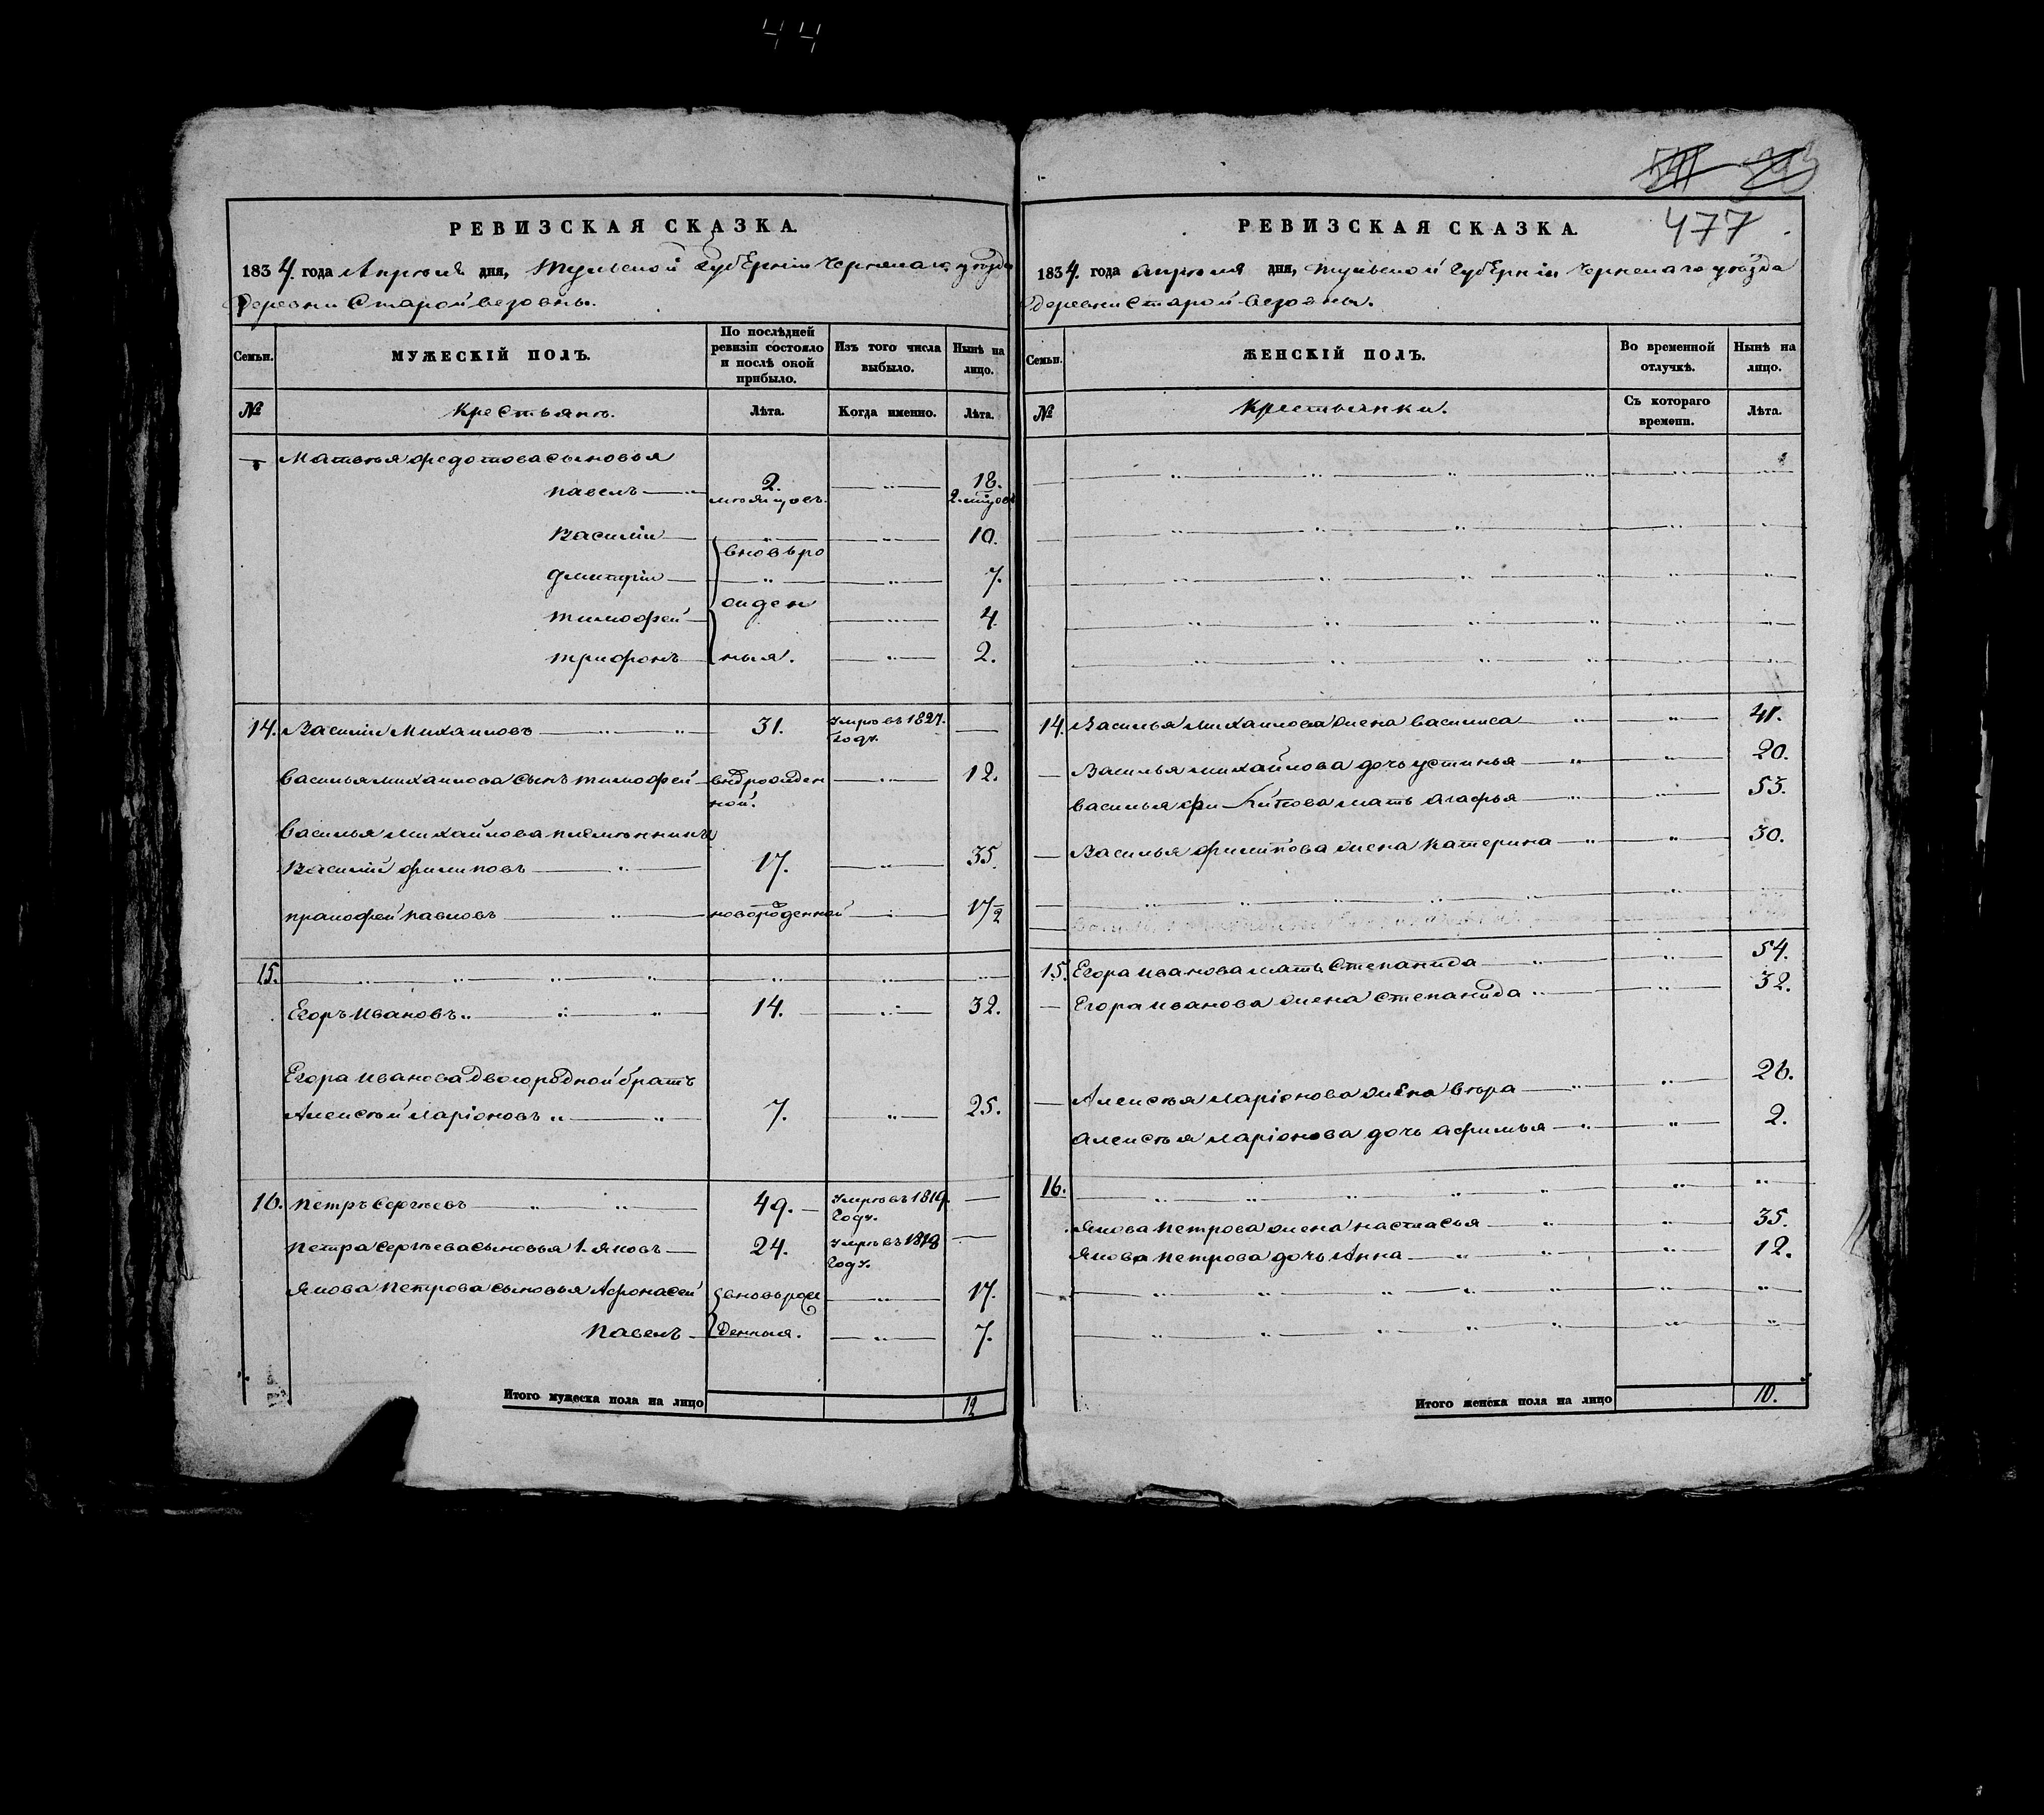 44
РЕВИЗСКАЯ СКАЗКА.
1834. года Апреля дня, Тульской губернiи Чернскаго уѣзда
Деревни Старой
Семьи.
МУЖЕСКІЙ ПОЛЪ.
По послѣдней ревизіи состояло и послѣ оной прибыло.
Изъ того числа выбыло.
Нынѣ на лицо.
№
Крестьянъ.
Лѣта.
Когда именно.
Лѣта.
Матвѣя Федотова сыновья
павелъ 2. мѣсяцовъ 18. 2.
Василiи 10.
Дмитрiи вновь ро 7.
тимофей жден 4.
трифонъ ныя. 2.
14. Василiи Михаиловъ 31. умре въ 1827. году.
Василья михаилова сынъ тимофей 12.
Василья михайлова племянники
Василiй филиповъ 17. 35.
павловъ новорожденной 17/2
15.
Егоръ Ивановъ 14. 32.
Егора Иванова двоюродной братъ
Алексѣй ларiоновъ 7. 25.
16. петръ Сергѣевъ 49. умре въ 1819. году.
петра сергѣева сыновья 1. яковъ 24. умре въ 1818 году.
Якова Петрова сыновья Афонасей вновь рож 17.
павелъ денныя. 7.
Итого мужеска пола на лицо 12
477
РЕВИЗСКАЯ СКАЗКА.
1834. года апреля дня, тульской губернiи Чернскаго уѣзда
деревни Старой
Семьи.
ЖЕНСКІЙ ПОЛЪ.
Во временной отлучкѣ.
Нынѣ на лицо.
№
Крестьянки.
Съ котораго времени.
Лѣта.
14. Василья михаилова жена василиса 41.
Василья михайлова дочь устинья 20.
василья мать агафья 53.
Василья филипова жена катерина 30.
15. Егора иванова мать степанида 54.
Егора иванова жена степанида 32.
Алексѣя ларiонова жена вѣра 26.
алексѣя ларiонова дочь афимья 2.
16.
якова петрова жена настасья 35.
якова петрова дочь Анна 12.
Итого женска пола на лицо 10.